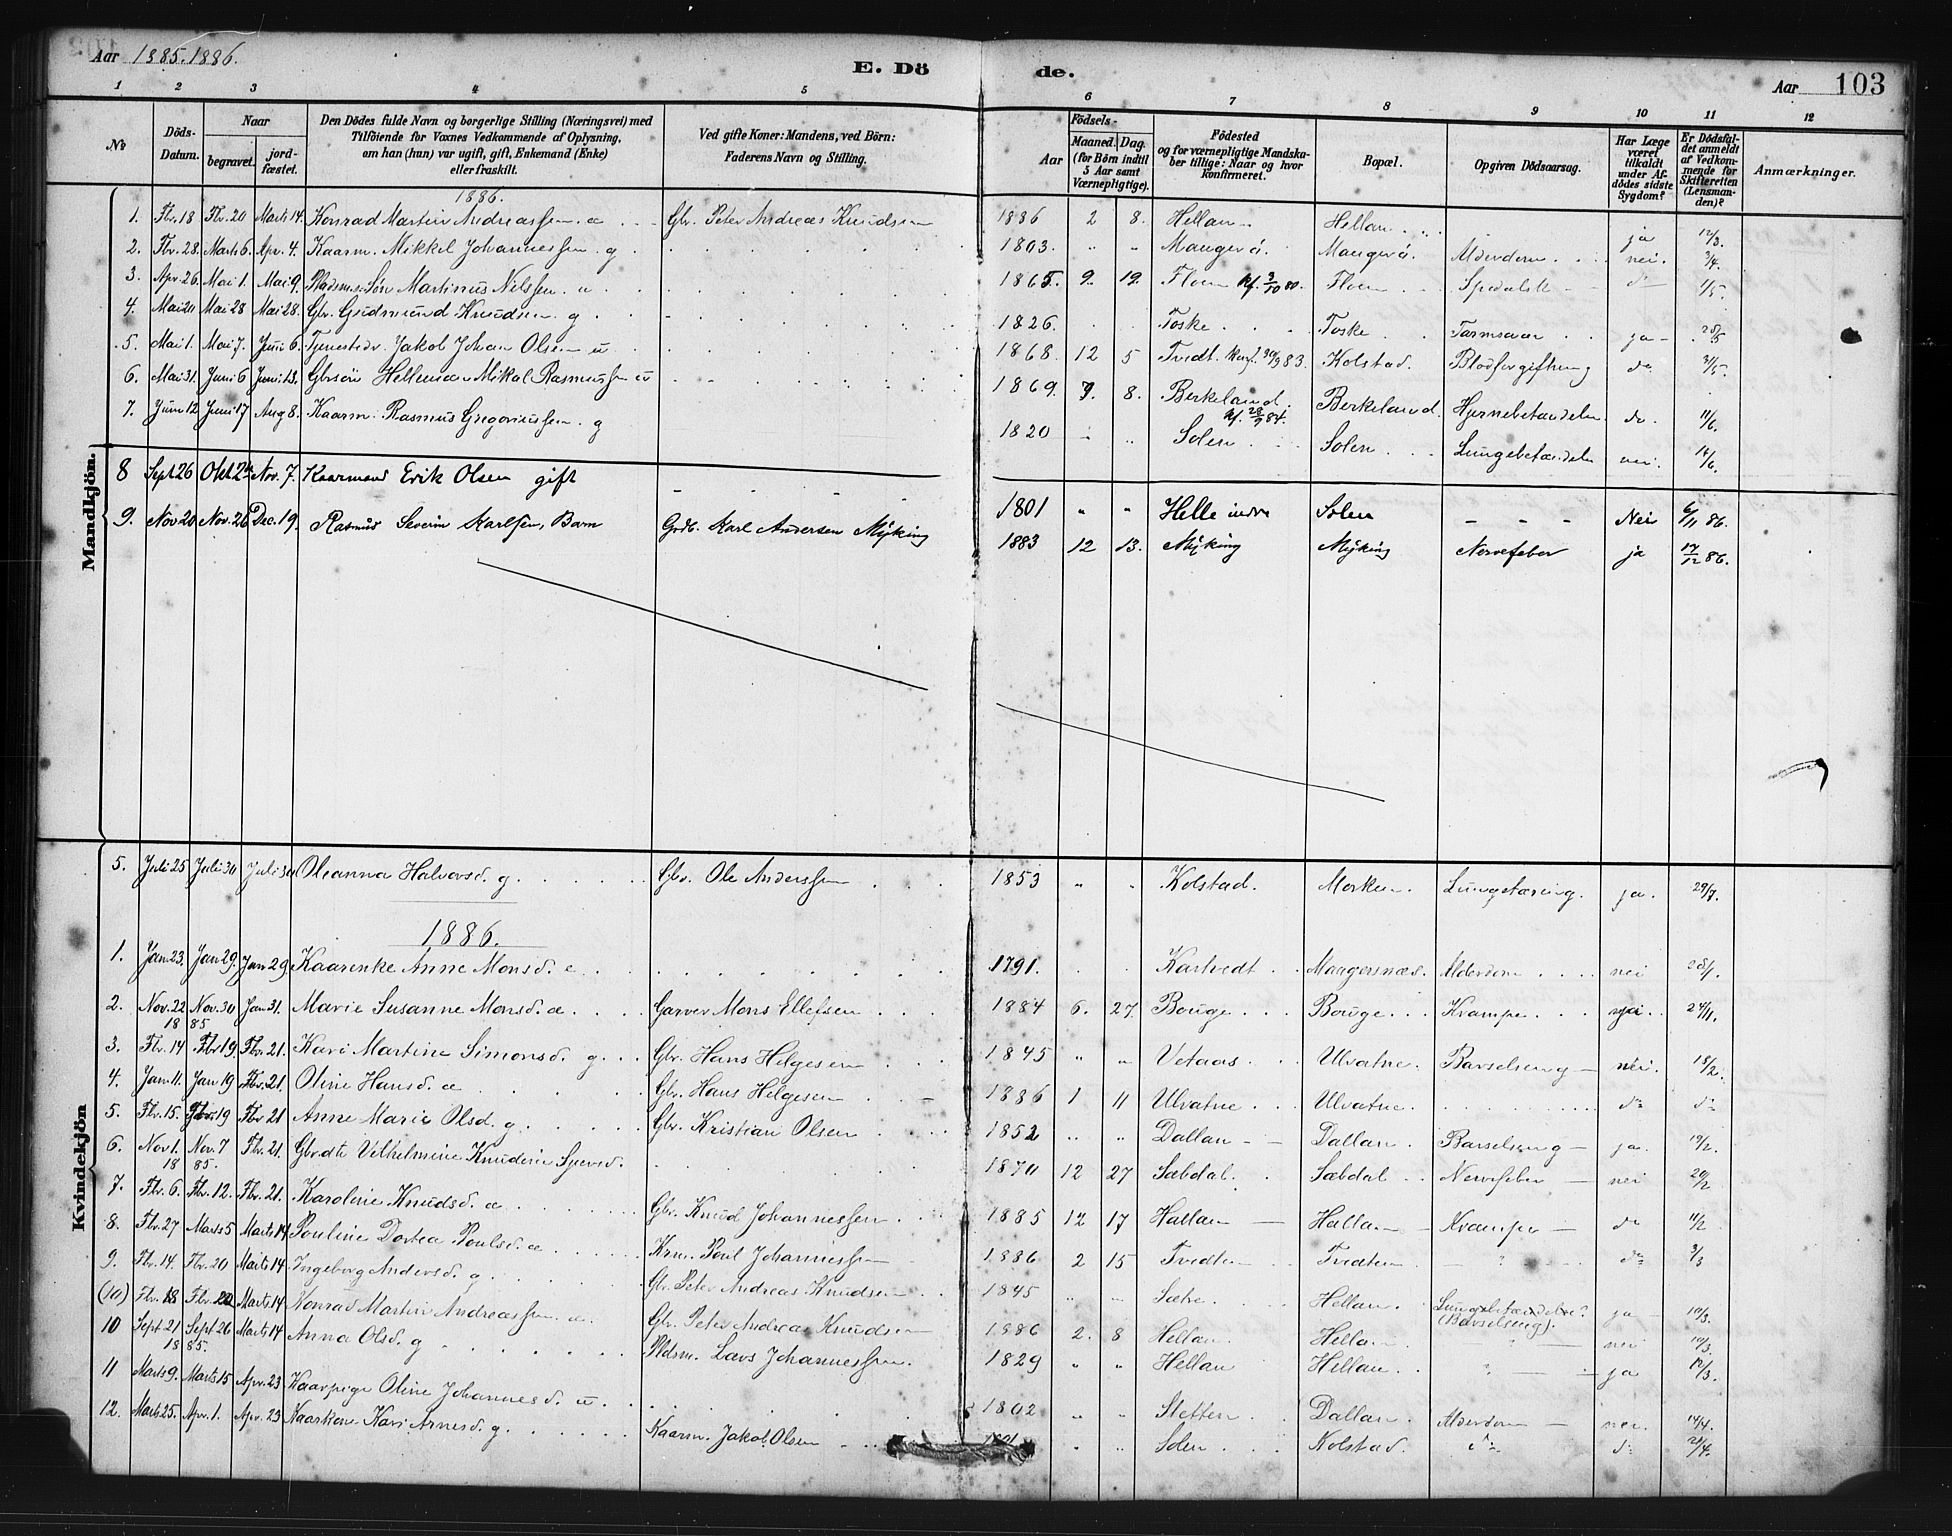 Aar 1885.1886. E. Döde. Aar 103
1 2 3 4 5 6 7 8 9 10 11 12
No
Döds-Datum.
Naar begravet. jordfæstet.
Den Dödes fulde Navn og borgerlige Stilling (Næringsvei) med Tilföiende for Voxnes Vedkommende af Oplysning, om han (hun) var ugift, gift, Enkemand (Enke) eller fraskilt.
Ved gifte Koner: Mandens, ved Börn: Faderens Navn og Stilling.
Födsels- Aar Maaned. Dag. (for Börn indtil 5 Aar samt Værnepligtige).
Födested og for værnepligtige Mandskaber tillige: Naar og hvor konfirmeret.
Bopæl.
Opgiven Dödsaarsag.
Har Læge været tilkaldt under Afdödes sidste Sygdom?
Er Dödsfaldet anmeldt af Vedkommende for Skifteretten (Lensmanden)?
Anmærkninger.
Mandkjön.
1886.
1. Fbr. 18 Fbr. 20 Marts 14. Konrad Martin Andreassen. a Gbr. Peter Andreas Knudsen 1886 2 8. Hellan Hellan ja 12/3.
2. Fbr. 28. Marts 6. Apr. 4. Kaarm. Mikkel Johannessen g 1803. " " Mangerö. Mangerö. Alderdom nei. 3/4.
3. Apr. 26. Mai 1. Mai 9. Martinus Nilssen. u 1865. 9. 19. Floen Kf. 3/10 80. Floen Spedalsk do 1/5.
4. Mai 20 Mai 28 Mai 28. Gbr. Gudmund Knudsen g 1826. Toske Toske Tarmsaar ja 25/5
5. Mai 1. Mai 7. Juni 6. Tjenestedr. Jakob Johan Olsen u 1868. 12 5 Tvedt. Konf. 30/9 83. Kolstad. Blodforgiftning do 3/5.
6. Mai 31. Juni 6 Juni 13. Gbrsön Mikal Rasmussen u 1869. 7. 8. Berkeland. Kf. 28/9 84. Berkeland. Hjernebetændelse do. 11/6.
7. Juni 12 Juni 17 Aug 8. Kaarm. Rasmus Gregoriussen. g 1820 Solem Solem Lungebetændelse nei. 14/6.
8 Sept 26 Okt 2 Nov. 7. Kaarmand Erik Olsen gift 1801 " " Helle indre Solem Nei 6/11 86.
9. Nov 20 Nov. 26 Dec. 19. Rasmus Severin Karlsen, Barn Grdb. Karl Andersen Mÿking 1883 12 13. Mÿking Mÿking Nervefeber ja 17/12 86.
Kvindekjön
5. Juli 25 Juli 30 Juli 30 Oleanna Halvorsd. g. Gbr. Ole Anderssen 1853 " " Kolstad. Morken. Lungetæring. ja. 29/7.
1886.
1. Jan 23. Jan 29. Jan 29. Kaarenke Anne Monsd. e. 1791. Kartvedt Mangersnæs. Alderdom nei 28/1.
2. Nov. 22 Nov. 30 Jan 31. Marie Susanne Monsd. a Garver Mons Ellefsen 1884 6. 27. Bouge Bouge Krampe nei 24/11.
18 85.
3. Fbr. 14 Fbr 19. Fbr. 21. Kari Martine Simonsd. g. Gbr. Hans Helgesen 1845 " " Vetaas Ulvatne Barselseng nei. 18/2.
4. Jan 11. Jan 19 Fbr. 21. Oline Hansd. a Gbr. Hans Helgesen 1886 1 11 Ulvatne Ulvatne. do do
5. Fbr. 15. Fbr. 19 Fbr 21 Anne Marie Olsd. g. Gbr. Kristian Olsen 1852 " " Dallan Dallan Barselseng ja. 19/2.
6. Nov 1. Nov. 7 Fbr. 21. Gbrdtr Vilhelmine Knudsd. 1870 12 27 Sæbdal. Sæbdal Nervefeber nei 20/2
18 85.
7. Fbr. 6. Fbr. 12. Fbr. 21. Karoline Knudsd. a Gbr. Knud Johannessen 1885 12 17 Hallan Hallan Krampe do 11/2
8. Fbr. 27 Marts 5 Marts 14 Pouline Dortea Poulsd. a Krm. Poul Johannessen 1886 2 15 Tvedten Tvedten " do 3/3
9. Fbr. 14. Fbr. 20 Marts 14 Ingeborg Andersd. g. Gbr. Peter Andreas Knudsen 1845 " " Sætre. Hellan. Lungebetændelse? (Barselseng). ja 10/3.
(10) Fbr. 18 Fbr. 22 Marts 14 Konrad Martin Andreassen. a. Gbr. Peter Andreas Knudsen 1886 2. 8 Hellan. Hellan " nei 10/3.
10 Sept 21 Sept 26 Marts 14 Anna Olsd. g Pldsm. Lars Johannessen. 1829 " " Hellan Hellan " ja 12/3.
18 85.
11 Marts 9. Marts 15 Apr. 23 Kaarpige Oline Johannesd. u. 1802 " " Stetten Dallan. Alderdom nei. 14/4.
12. Marts 25. Apr. 1. Apr. 23 Kaarkone Kari Arnesd. g. Kaarm. Jakob Olsen " " Solem Kolstad. do do 24/4.